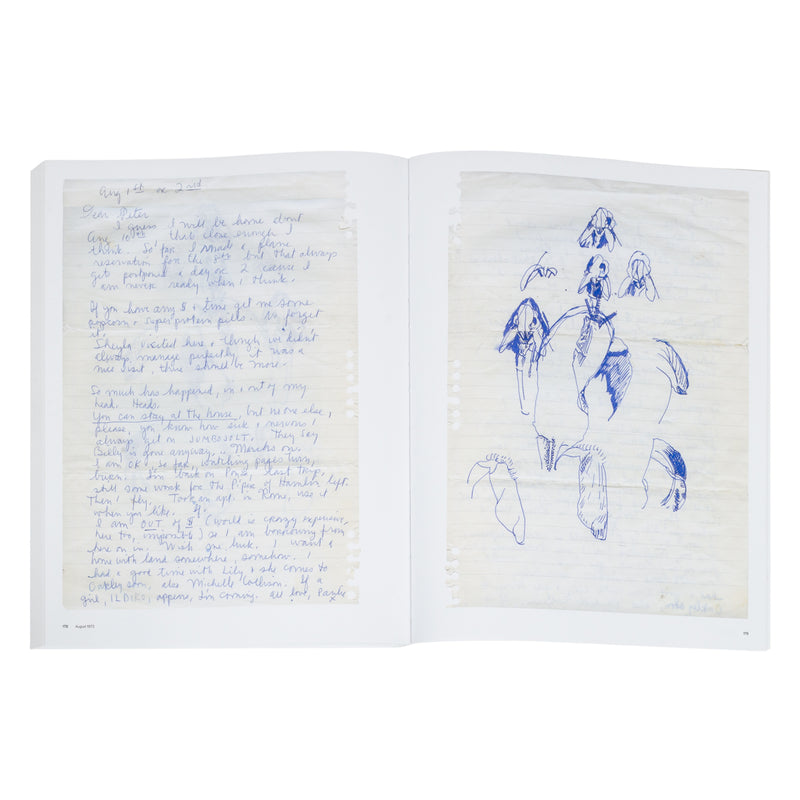 Aug 1st or 2nd
Dear Peter
I guess I will be home about
Aug 10th that close enough I
think. So far I made a plane
reservation for the 8th but that always
get postponed a day or 2 cause I
am never ready when I think.
If you have any $ + time get me some
popcorn + super protein pills. No forget
it.
Sheyla visited here + though we didn't
always manage perfectly it was a
nice visit, there should be more.
So much has happened, in + out of my
head. Heads.
You can stay at the house, but no one else,
please, you know how sick + nervous I
always get on JUMBOJET. They say
Billy is gone anyway.
I am OK, so far, watching pages turn,
burn. I'm back on Pons, last trip,
still some work for the Piper of Hamlin left.
Then I fly. Took an apt. in Rome, use it
when you like. If.
I am OUT of $ (World is crazy expensive,
here too, impossible) so I am borrowing from
here on in. Wish me luck. I want a
home with land somewhere, somehow. I
had a good time with Lily + she comes to
Oakley soon, also Michelle Collison. If a
girl, ILDIKO, appears, I'm coming. All love, Paula
170 August 1973
171